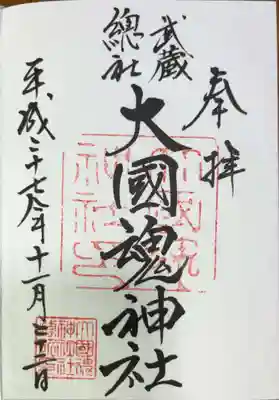 奉拝
武蔵
總社
大國魂神社
平成二十七年十一月